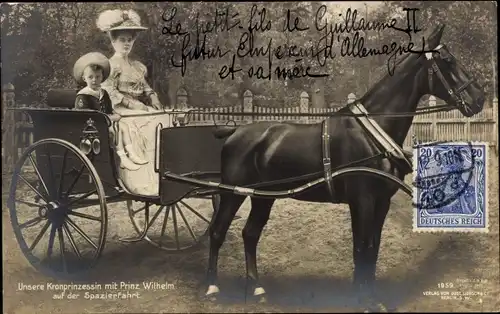 Le petit fils de Guillaume II
futur Empereur d'Allemagne
et sa mère
20 20
DEUTSCHES REICH
Unsere Kronprinzessin mit Prinz Wilhelm
auf der Spazierfahrt.
1959
VERLAG VON GUST. LIERSCH & C°
BERLIN S.W.